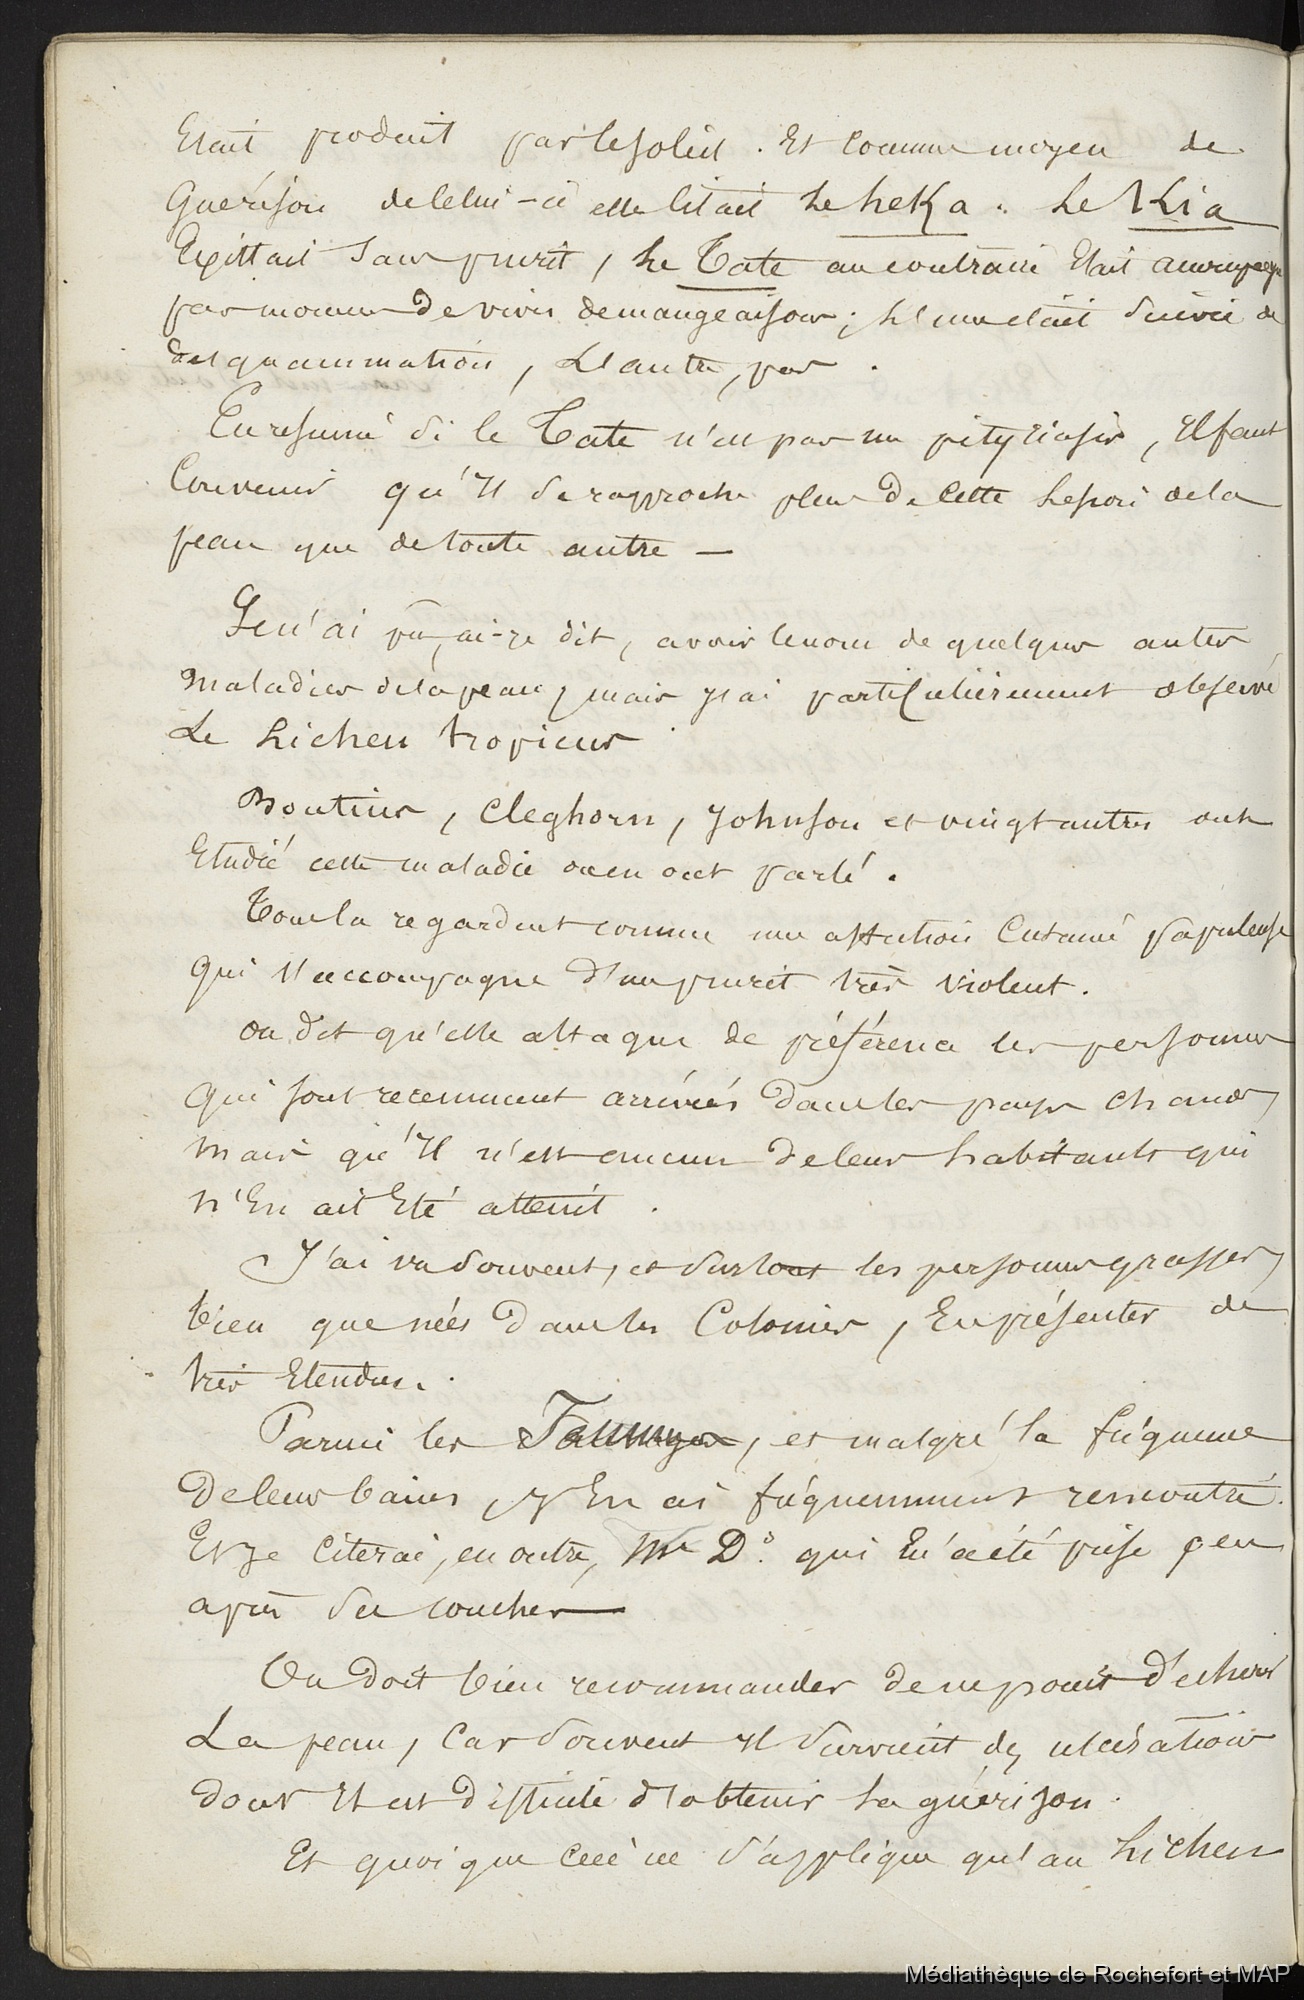 Etait produit par le soleil. Et comme moyen de
Guérison de celui-ci elle citait le heKa. Le Kia
Existait sans prurit, le Tate au contraire Etait accompagné
par moment de vives demangeaisons; L'une était suivie de
desquammation, L'autre, pas.
En resumé si le Tate n'est pas un pityriasis, Il faut
Convenir qu'Il se rapproche plus de cette lesion de la
peau que de toute autre —
Je n'ai pu, ai-je dit, avoir le nom de quelques autres
Maladies de la peau, mais j'ai particulièrement observé
Le Lichen tropicus
Bontius, Cleghorn, Johnson et vingt autres ont
Etudié cette maladie ou en ont parlé.
Tous la regardent comme une affection Cutanée papuleuse
Qui s'accompagne d'un prurit très violent.
On dit qu'elle attaque de préférence les personnes
Qui sont recemment arrivées dans les pays chauds,
Mais qu'Il n'est aucun de leurs habitants qui
N'En ait Eté atteint.
J'ai vu souvent, et surtout les personnes grasses,
bien que nées dans les Colonies, En présenter de
très Etendus.
Parmi les, et malgré la fréquence
De leurs bains, j'En ai fréquemment rencontré.
Et je Citerai, en outre, Me D. qui En a été prise peu
après ses couches —
On doit bien recommander de ne point déchirer
La peau, Car souvent Il survient des ulcérations
dont Il est difficile d'obtenir la guérison.
Et quoique Ceci ne s'applique qu'au Lichen
Médiathèque de Rochefort et MAP